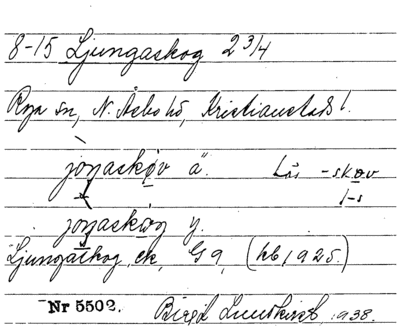 8-15 Ljungaskog 2 3/4
Röja sn, N. Åsbo hd, Kristianstads l.
joŋaskǫv ä.
Läs -skov
joŋaskǫg y.
Ljungaskog, ek, G9, (kb 1925.)
Nr 5502. Birgit 1938.